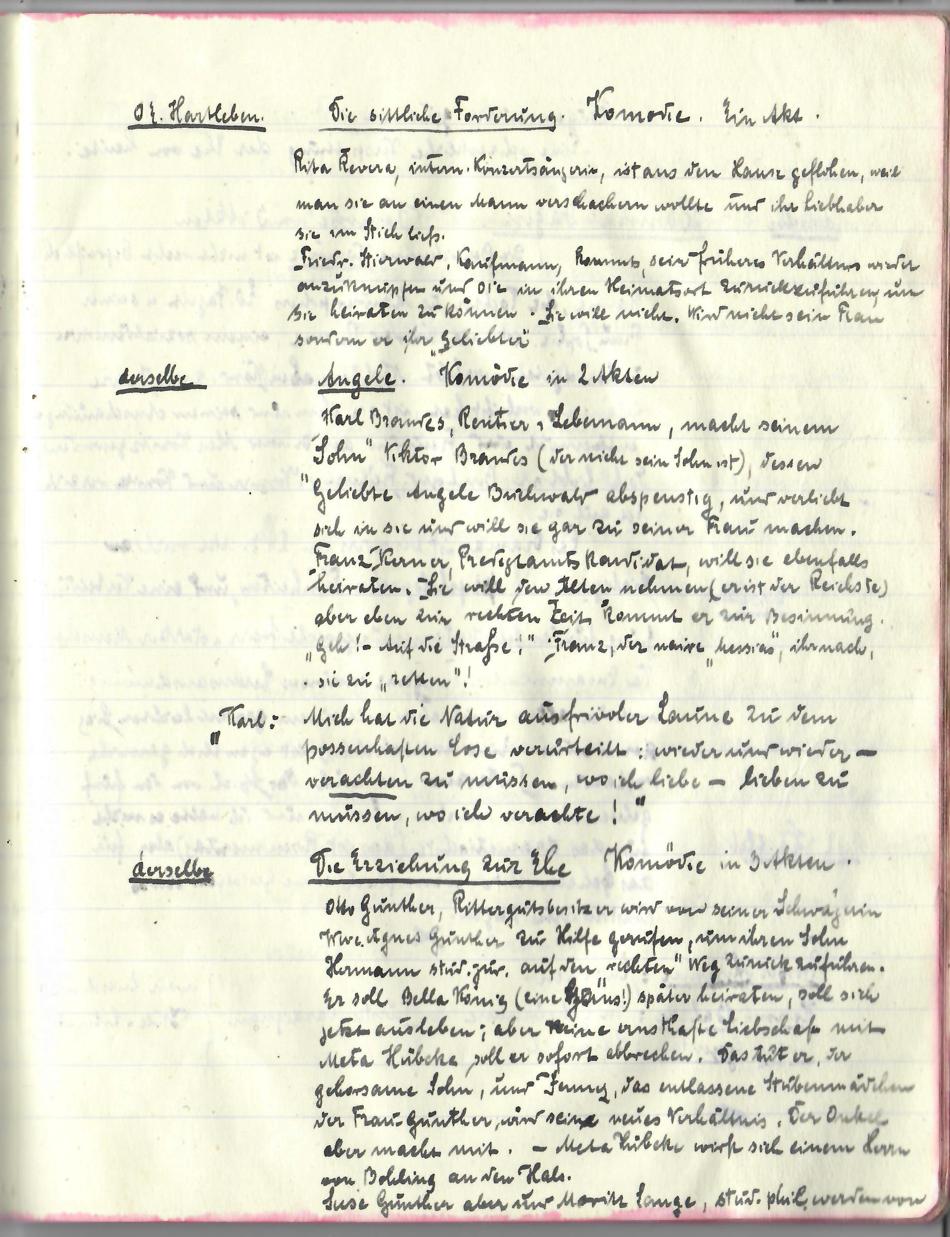 O.E. Hartleben. Die sittliche Forderung. Komödie. Ein Akt.
Rita Revera, intern. Konzertsängerin, ist aus dem Hause geflohen, weil
man sie an einen Mann verschachern wollte und ihr Liebhaber
sie im Stich ließ.
Friedr. Stierwald, Kaufmann, kommt, sein früheres Verhältnis wieder
anzuknüpfen und sie in ihren Heimatsort zurückzuführen, um
sie heiraten zu können. Sie will nicht. Wird nicht sein Frau
sondern er ihr "Geliebter"
derselbe Angele. Komödie in 2 Akten
Karl Brandes, Rentier, Lebemann, macht seinem
"Sohn" Viktor Brandes (der nicht sein Sohn ist), dessen
"Geliebte Angele Buchwald abspenstig, und verliebt
sich in sie und will sie gar zu seiner Frau machen.
Franz Kerner, Predigtamtskandidat, will sie ebenfalls
heiraten. Sie will den Alten nehmen (er ist der Reichste)
aber eben zur rechten Zeit kommt er zur Besinnung.
"Geh! – Auf die Straße!" Franz, der naive "Messias", ihr nach,
sie zu "retten"!
"Karl: Mich hat die Natur aus frivoler Laune zu dem
possenhaften Lose verurteilt: wieder und wieder –
verachten zu müssen, wo ich liebe – lieben zu
müssen, wo ich verachte!"
derselbe Die Erziehung zur Ehe Komödie in 3 Akten.
Otto Günther, Rittergutsbesitzer wird von seiner Schwägerin
Wwe. Agnes Günther zu Hilfe gerufen, um ihren Sohn
Hermann stud. jur. auf den rechten" Weg zurückzuführen.
Er soll Bella König (eine Gans!) später heiraten, soll sich
jetzt ausleben; aber seine ernsthafte Liebschaft mit
Meta Hübcke soll er sofort abbrechen. Das tut er, der
gehorsame Sohn, und Jenny, das entlassene Stubenmädchen
der Frau Günther, wird sein neues Verhältnis. Der Onkel
aber macht mit. – Meta Hübcke wirft sich einem Herrn
von Bohling an den Hals.
Suse Günther aber und Moritz Lange, stud. phil, werden von